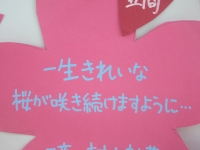 一生きれいな
桜が咲き続けますように…